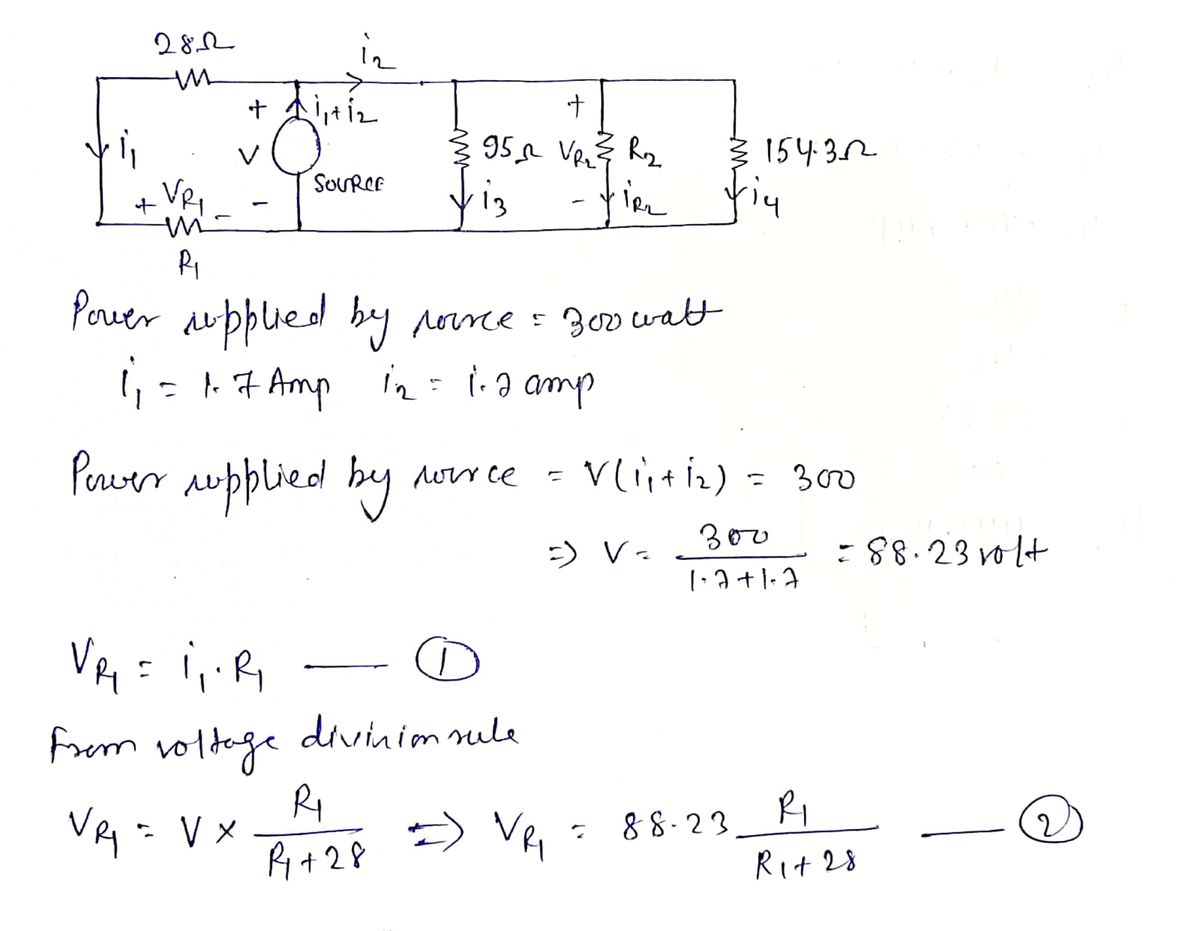 28Ω
i2
+ i1+i2
+
i1
V
95Ω VR2 R2
154.3Ω
SOURCE
+ VR1 -
-
i3
- iR2
i4
R1
Power supplied by source = 300 watt
i1 = 1.7 Amp i2 = 1.7 amp
Power supplied by source = V(i1+i2) = 300
=> V = 300 / 1.7+1.7 = 88.23 volt
VR1 = i1.R1 — ①
From voltage division rule
VR1 = V × R1 / R1+28 => VR1 = 88.23 R1 / R1+28 — ②